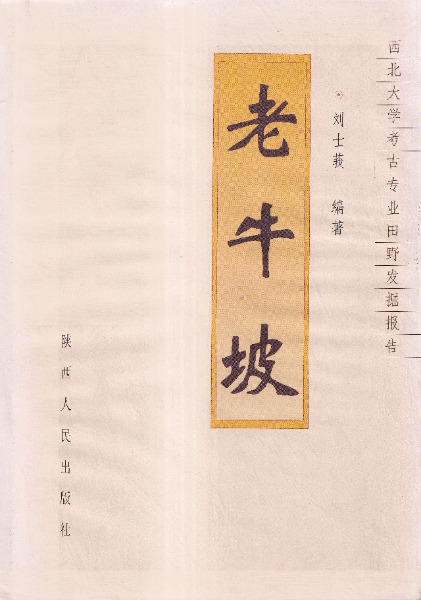 西北大学考古专业田野发掘报告
刘士莪 编著
老牛坡
陕西人民出版社